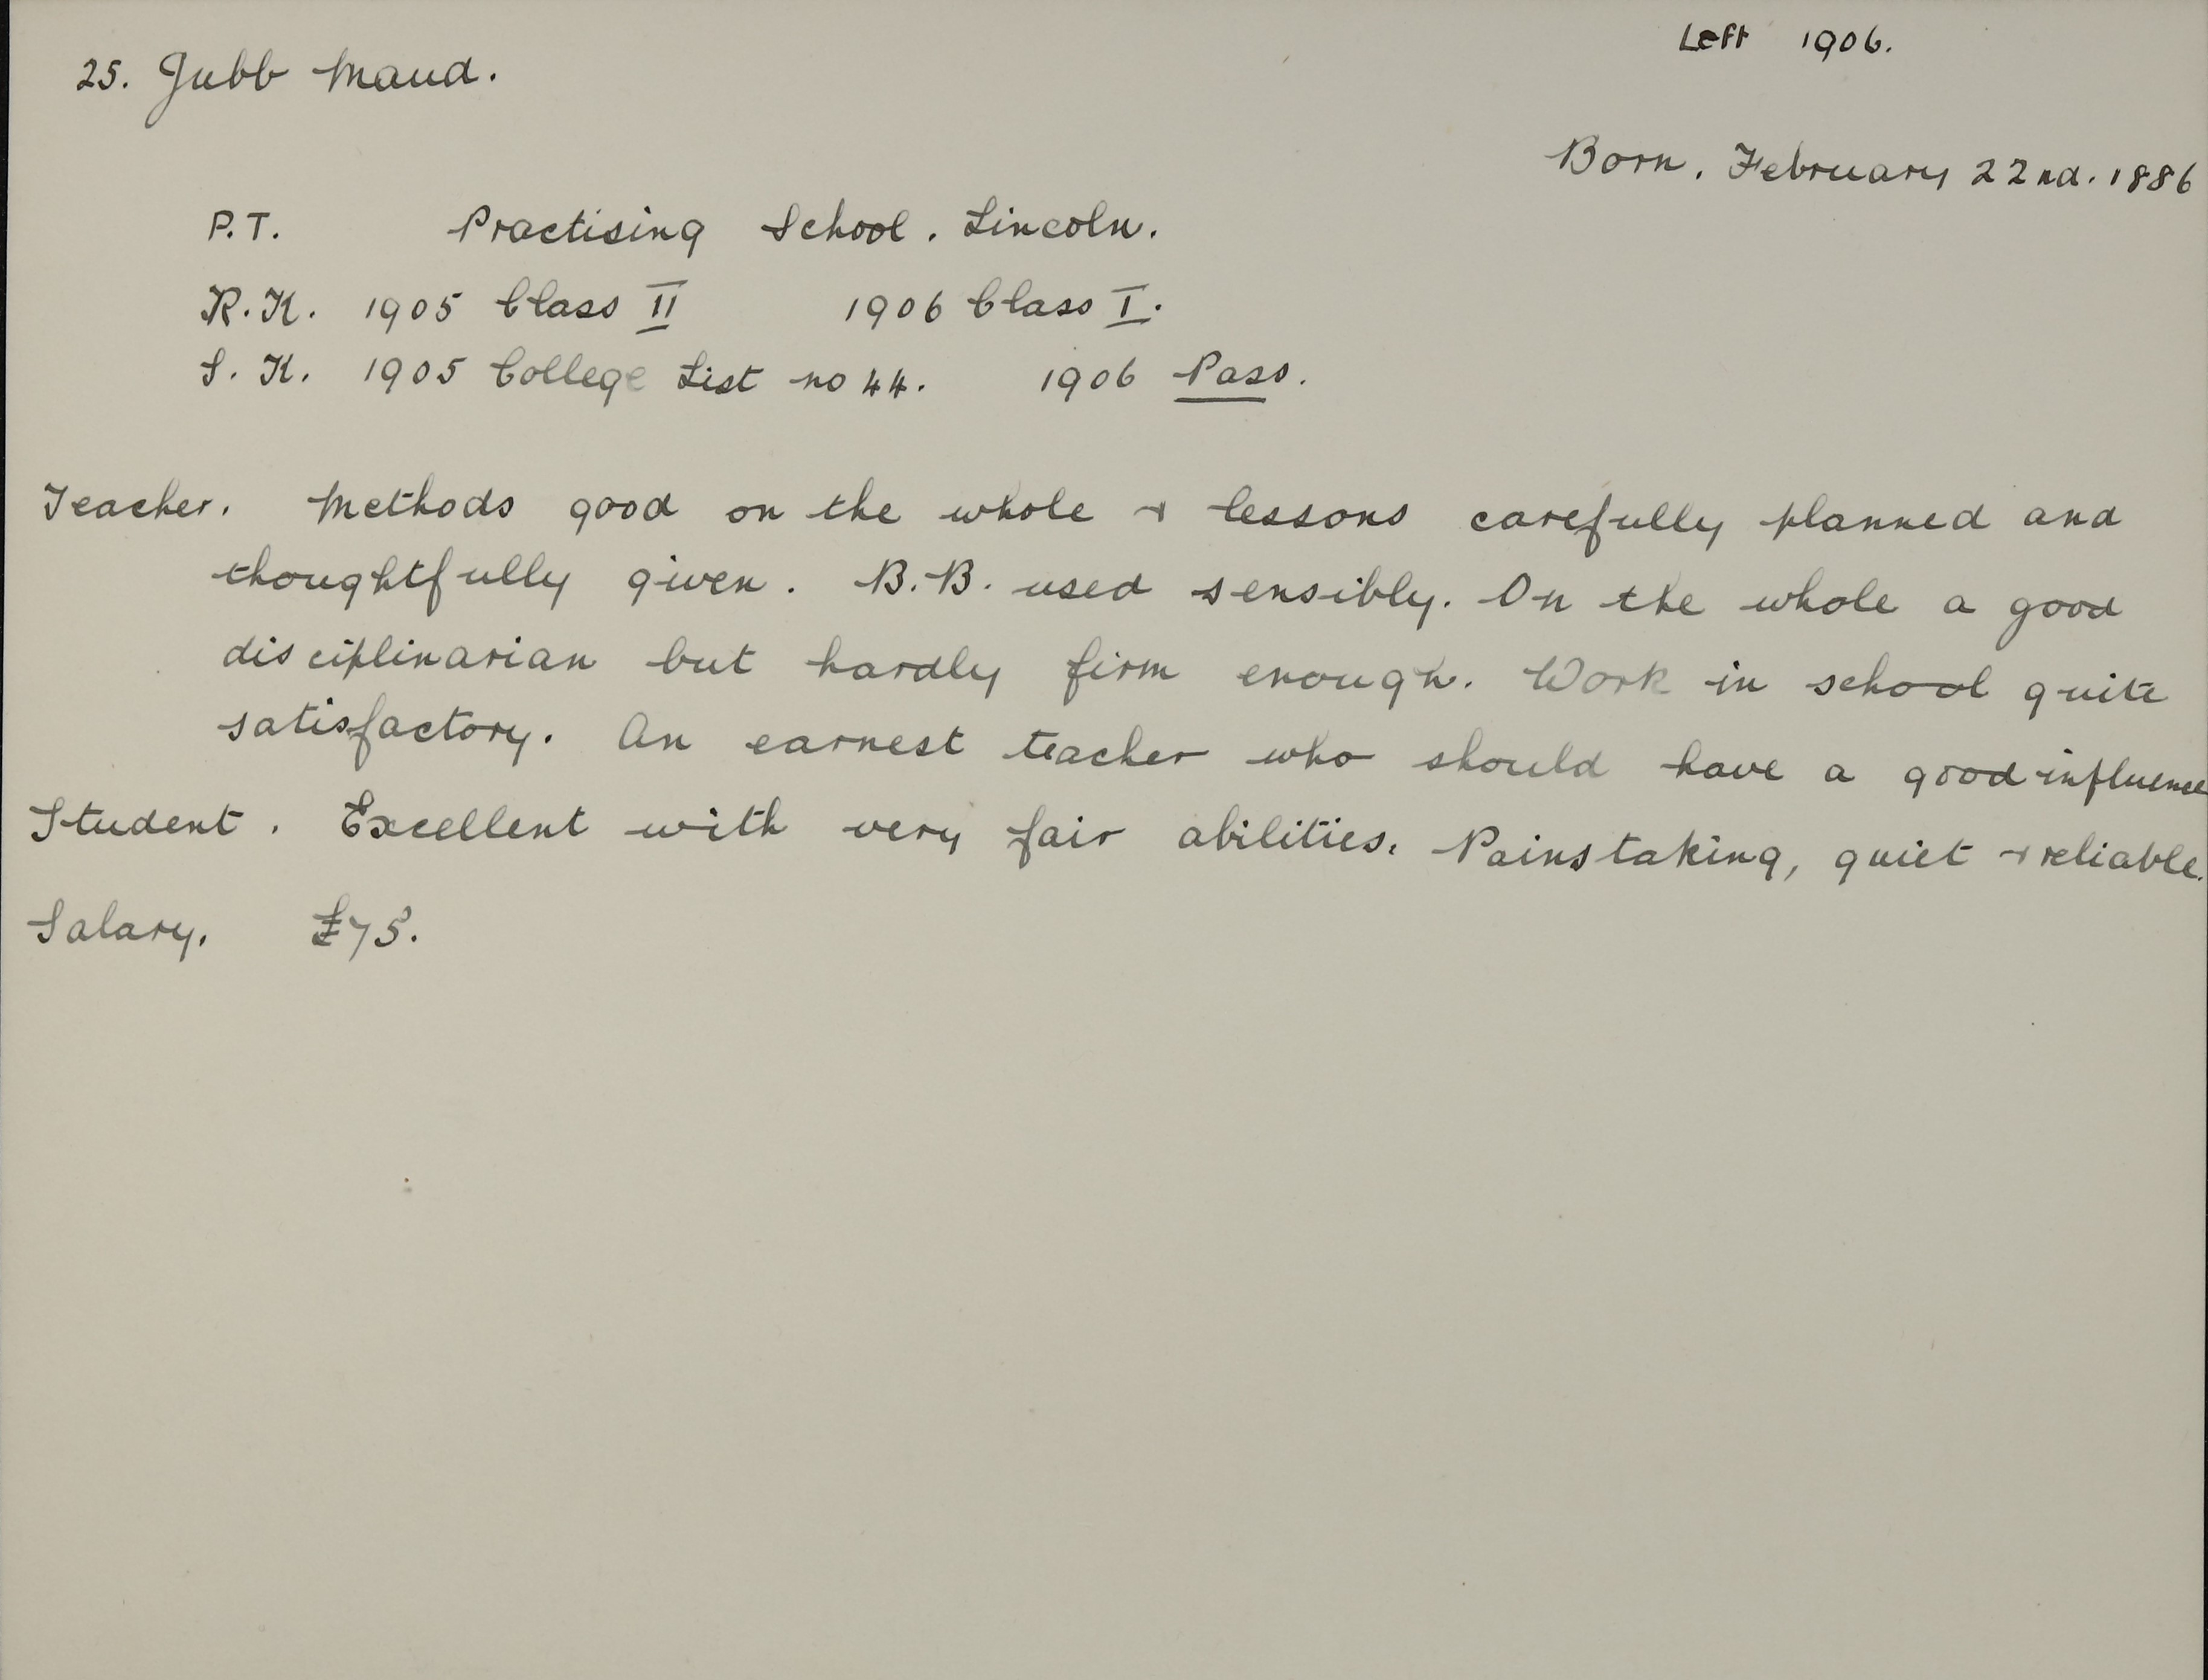 Left 1906.
25. Jubb Maud.
Born. February 22nd. 1886
P.T. Practising School. Lincoln.
R.K. 1905 Class II 1906 Class I.
S.K. 1905 College List no 44. 1906 Pass.
Teacher. Methods good on the whole & lessons carefully planned and
thoughtfully given. B.B. used sensibly. On the whole a good
disciplinarian but hardly firm enough. Work in school quite
satisfactory. An earnest teacher who should have a good influence
Student. Excellent with very fair abilities. Painstaking, quiet & reliable.
Salary. £75.